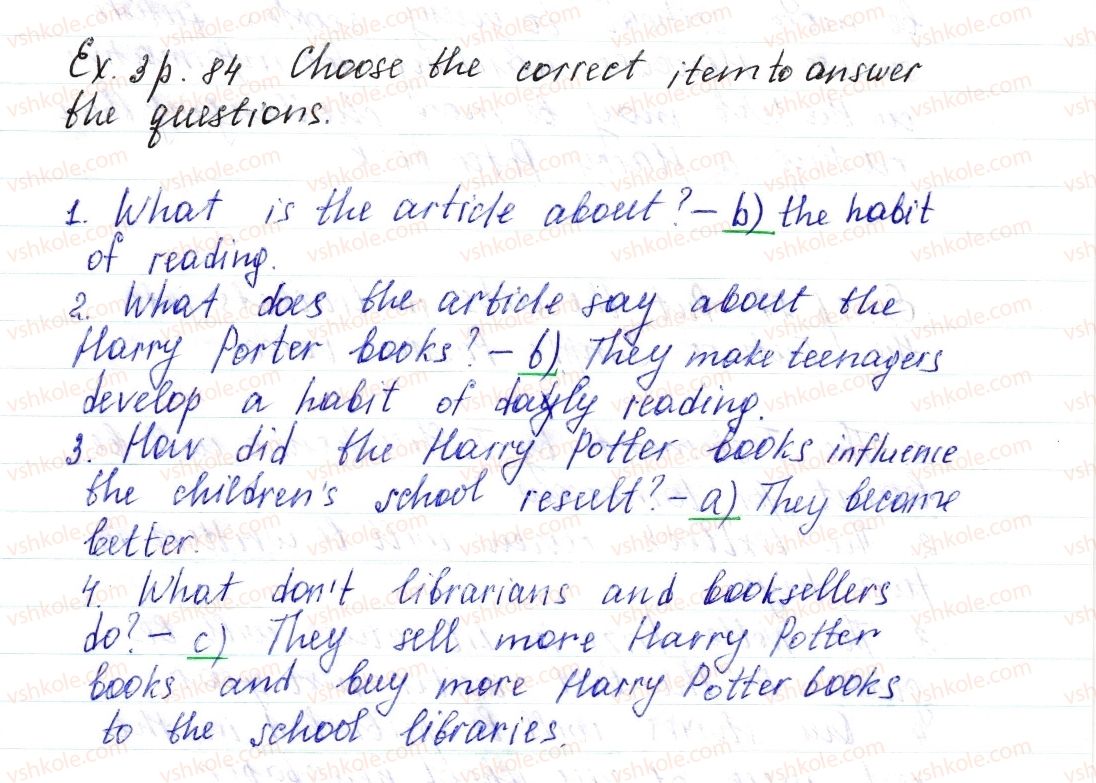 Ex. 3 p. 84 Choose the correct item to answer
the questions.
1. What is the article about? – b) the habit
of reading.
2. What does the article say about the
Harry Porter books? – b) They make teenagers
develop a habit of dayly reading.
3. How did the Harry Potter books influence
the children's school result? – a) They became
better.
4. What don't librarians and booksellers
do? – c) They sell more Harry Potter
books and buy more Harry Potter books
to the school libraries.